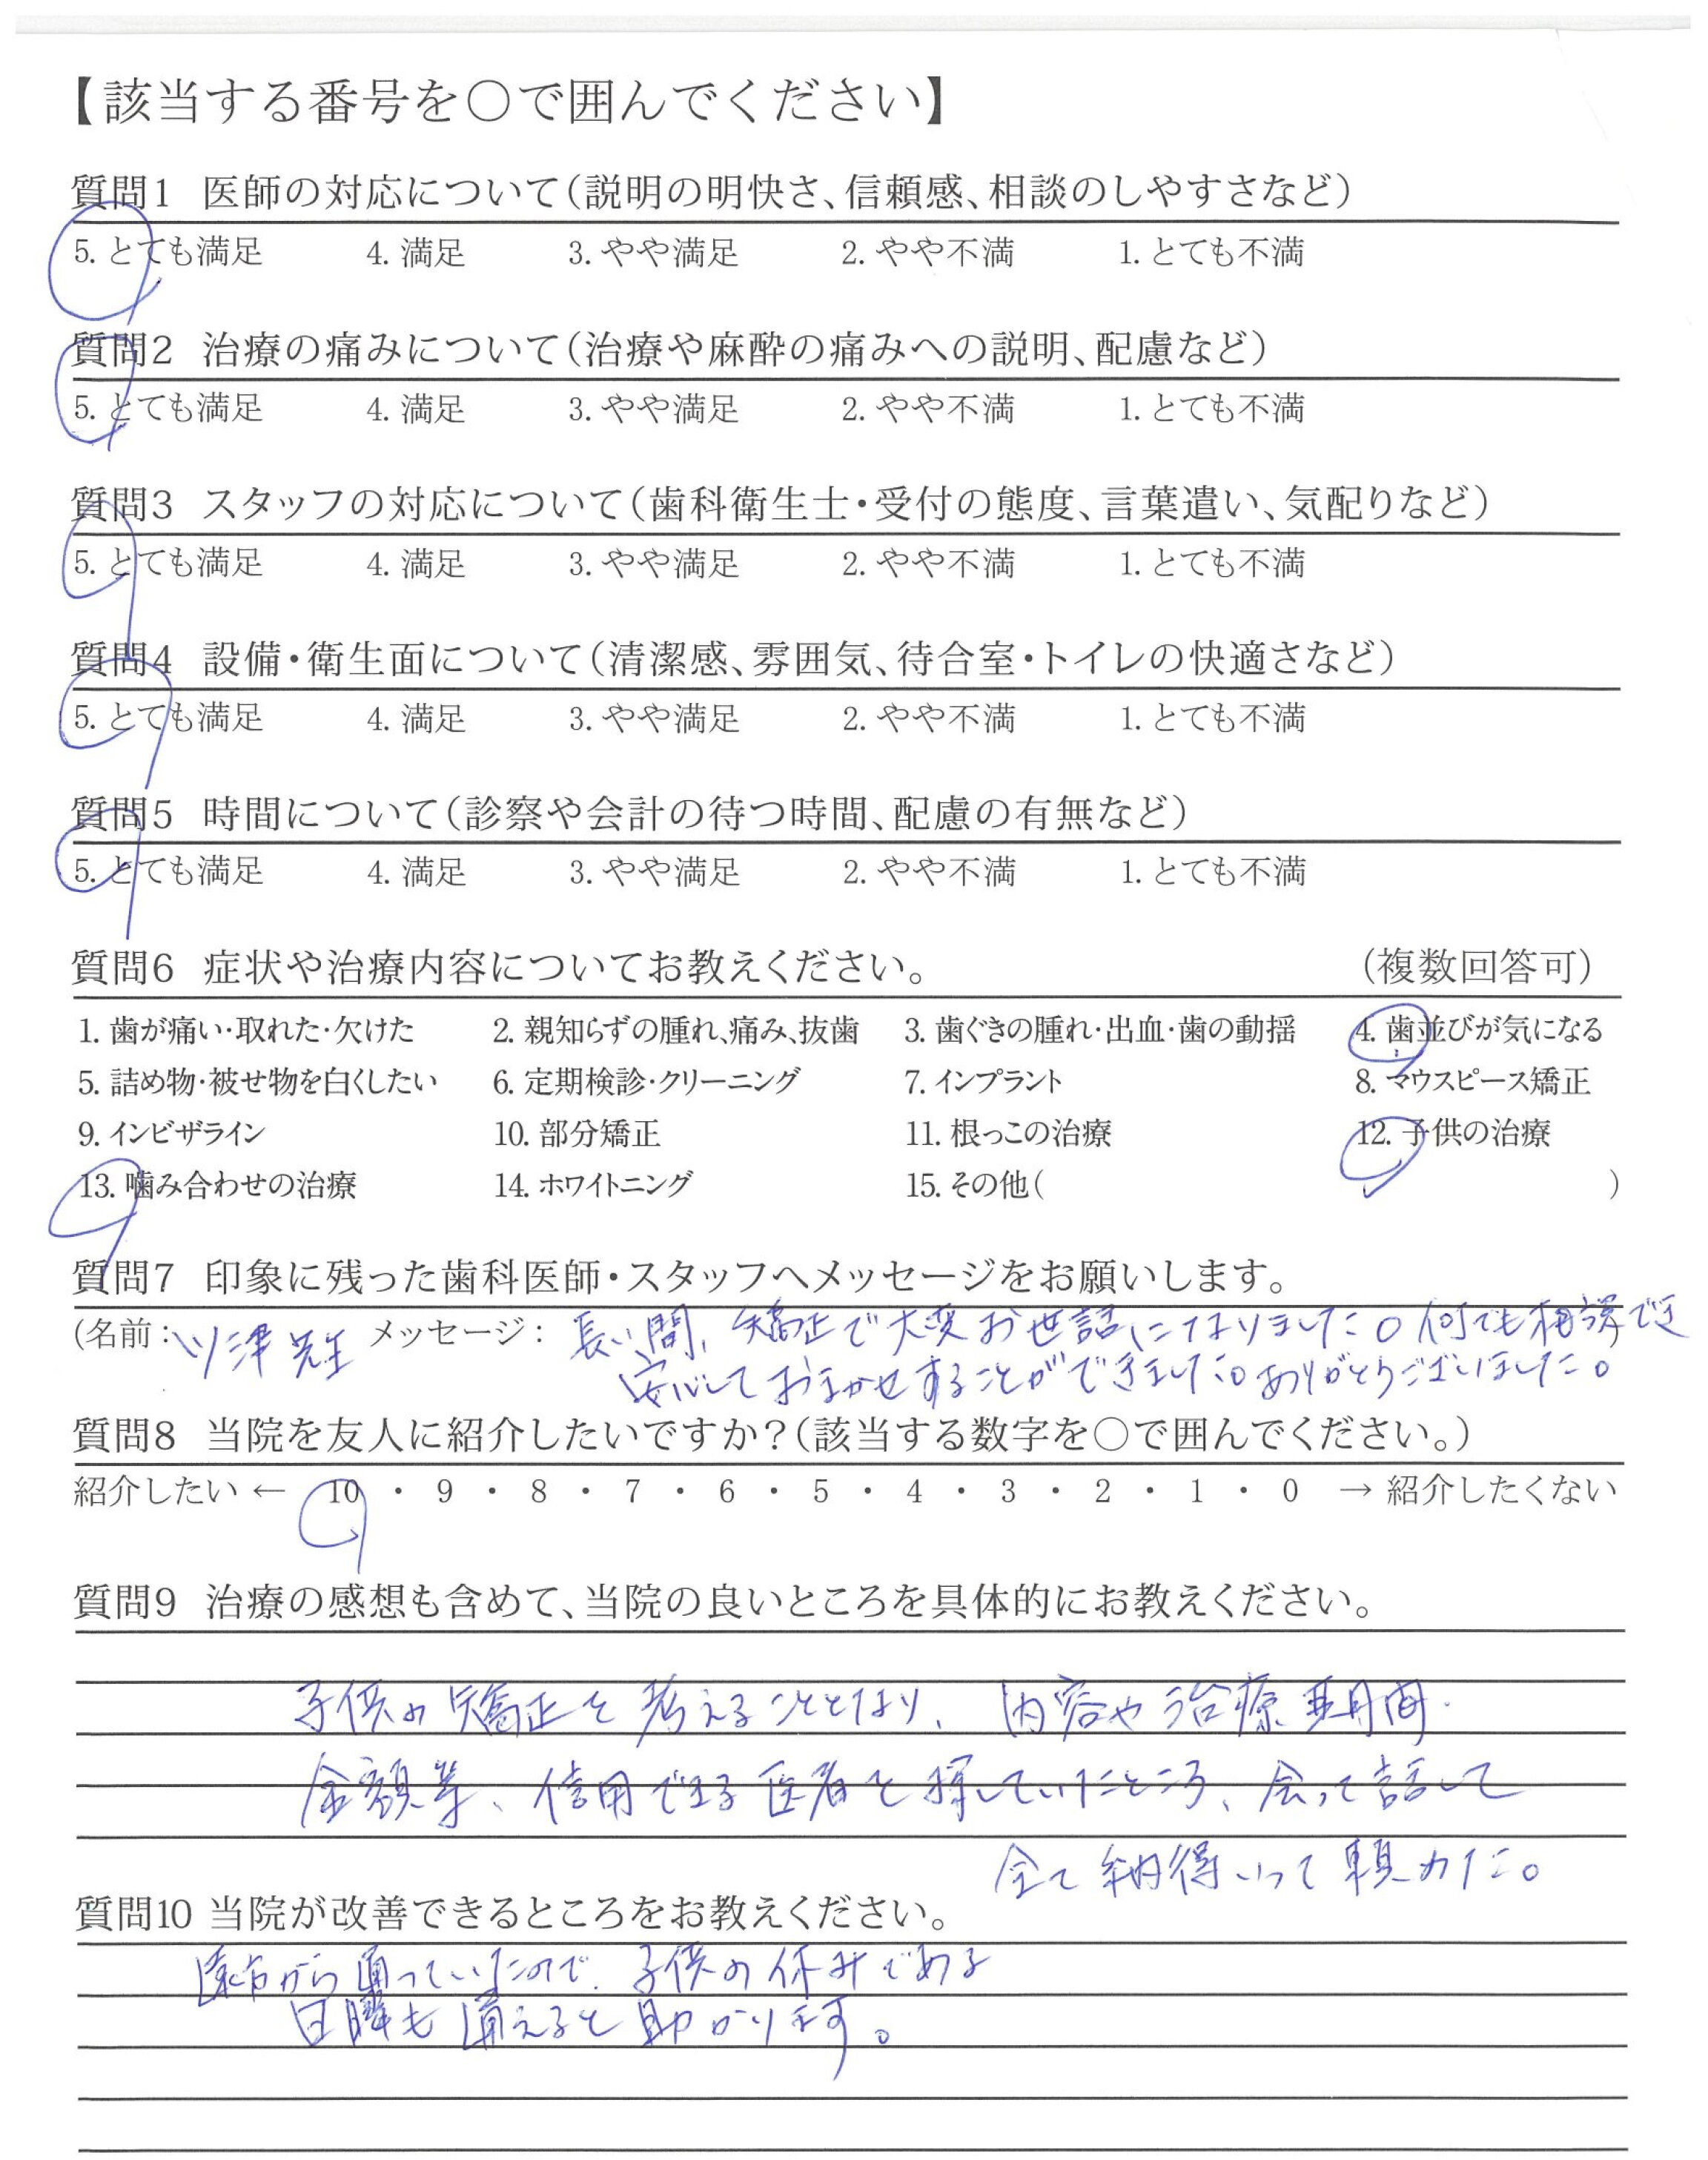 【該当する番号を○で囲んでください】
質問1 医師の対応について(説明の明快さ、信頼感、相談のしやすさなど)
5. とても満足 4. 満足 3. やや満足 2. やや不満 1. とても不満
質問2 治療の痛みについて(治療や麻酔の痛みへの説明、配慮など)
5. とても満足 4. 満足 3. やや満足 2. やや不満 1. とても不満
質問3 スタッフの対応について(歯科衛生士・受付の態度、言葉遣い、気配りなど)
5. とても満足 4. 満足 3. やや満足 2. やや不満 1. とても不満
質問4 設備・衛生面について(清潔感、雰囲気、待合室・トイレの快適さなど)
5. とても満足 4. 満足 3. やや満足 2. やや不満 1. とても不満
質問5 時間について(診察や会計の待つ時間、配慮の有無など)
5. とても満足 4. 満足 3. やや満足 2. やや不満 1. とても不満
質問6 症状や治療内容についてお教えください。 (複数回答可)
1. 歯が痛い・取れた・欠けた 2. 親知らずの腫れ、痛み、抜歯 3. 歯ぐきの腫れ・出血・歯の動揺 4. 歯並びが気になる
5. 詰め物・被せ物を白くしたい 6. 定期検診・クリーニング 7. インプラント 8. マウスピース矯正
9. インビザライン 10. 部分矯正 11. 根っこの治療 12. 子供の治療
13. 噛み合わせの治療 14. ホワイトニング 15. その他( )
質問7 印象に残った歯科医師・スタッフへメッセージをお願いします。
(名前: 先生 メッセージ: 長い間、矯正で大変お世話になりました。何でも相談でき )
安心しておまかせすることができました。ありがとうございました。
質問8 当院を友人に紹介したいですか?(該当する数字を○で囲んでください。)
紹介したい ← 10 ・ 9 ・ 8 ・ 7 ・ 6 ・ 5 ・ 4 ・ 3 ・ 2 ・ 1 ・ 0 → 紹介したくない
質問9 治療の感想も含めて、当院の良いところを具体的にお教えください。
子供の矯正を考えることとなり、内容や治療期間・
金額等、信用できる医者を探していたところ、会って話して
全て納得いって頼めた。
質問10 当院が改善できるところをお教えください。
遠方から通っていたので、子供の休みである
日曜も通えると助かります。